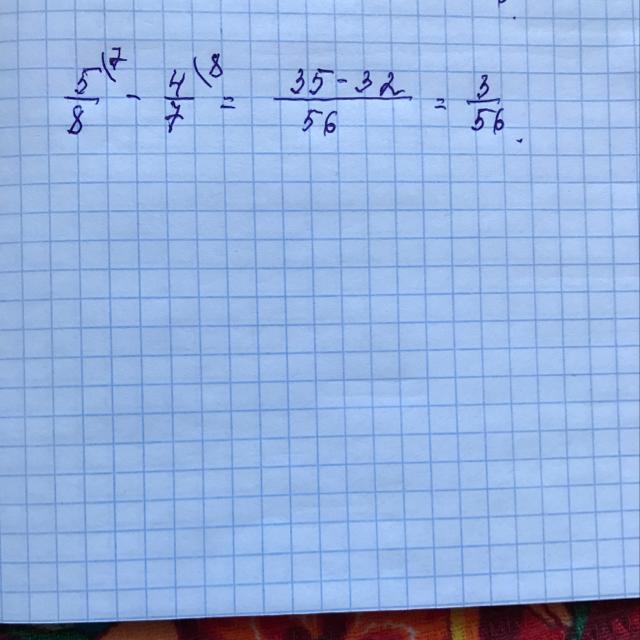 5/8 \7 - 4/7 \8 = 35-32/56 = 3/56.